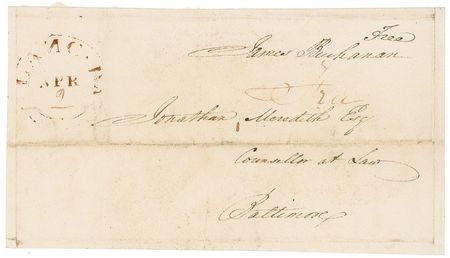 Free
James Buchanan
Free
APR
2
Jonathan Meredith Esq
Counsellor at Law
Baltimore